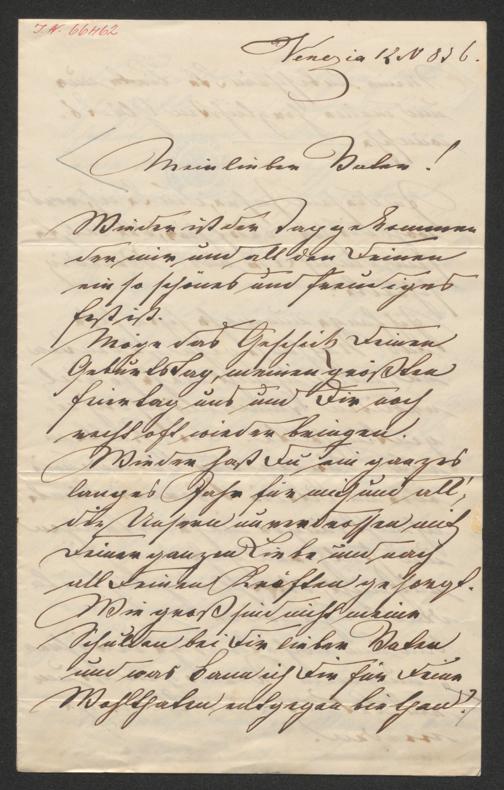 I.N. 66462
Venezia 12 N 836.
Mein lieber Vater!
Wieder ist der Tag gekommen
der mir und all den Deinen
ein so schönes und freudiges
Fest ist.
Möge das Geschick Deinen
Geburtstag, meinen größten
Feiertag uns und Dir noch
recht oft wieder bringen.
Wieder hast Du ein ganzes
langes Jahr für mich und all'
die Unsern unverdrossen mit
Deiner ganzen Liebe und nach
all Deinen Kräften gesorgt.
Wie groß sind nicht meine
Schulden bei Dir lieber Vater
und was kann ich Dir für Deine
Wohlthaten entgegen biethen?